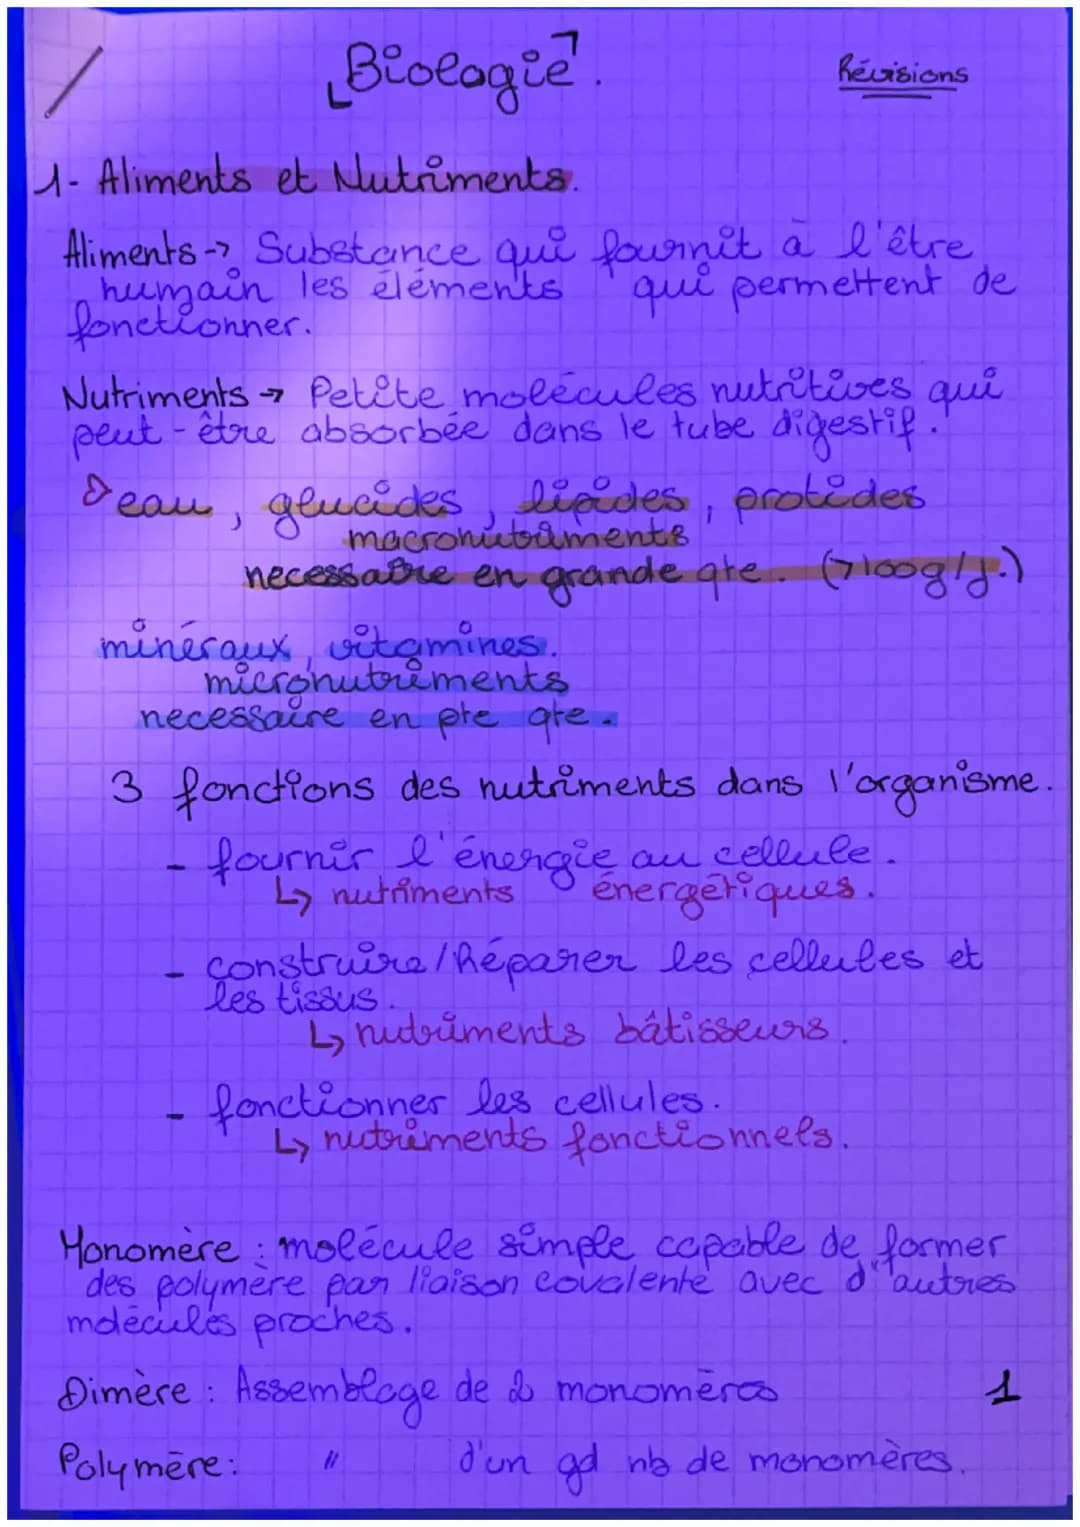 Biologie.
Révisions
1- Aliments et Nutriments.
Aliments -> Substance qui fournit à l'être
humain les éléments qui permettent de
fonctionner.
Nutriments -> Petite molécules nutritives qui
peut-être absorbée dans le tube digestif.
eau, glucides, lipides, protides
macronutriments
necessaire en grande qte. (>100g/j.)
minéraux, vitamines.
micronutriments
necessaire en pte qte.
3 fonctions des nutriments dans l'organisme.
- fournir l'énergie au cellule.
↳ nutriments énergétiques.
- construire/Réparer les cellules et
les tissus.
↳ nutriments bâtisseurs.
- fonctionner les cellules.
↳ nutriments fonctionnels.
Monomère : molécule simple capable de former
des polymère par liaison covalente avec d'autres
molécules proches.
Dimère : Assemblage de 2 monomères
1
Polymère: " d'un gd nb de monomères.